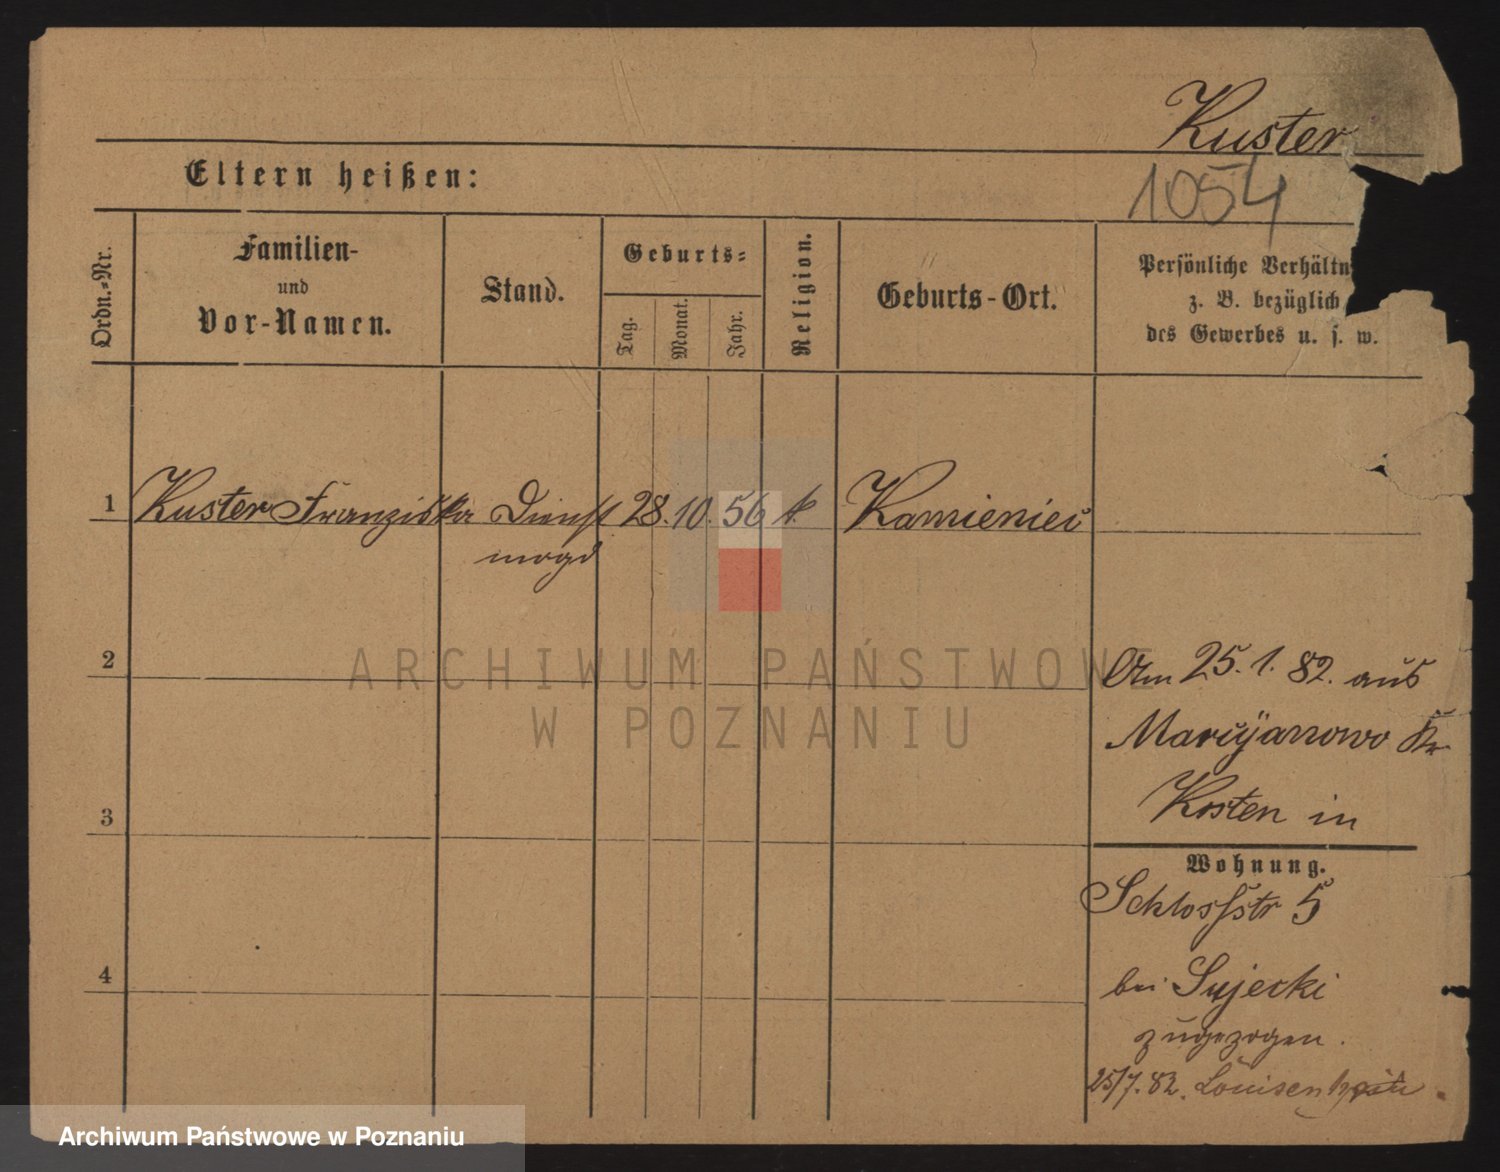 Kuster
1054
Eltern heißen:
Ordn.-Nr.
Familien-
und
Vor-Namen.
Stand.
Geburts-
Tag.
Monat.
Jahr.
Religion.
Geburts-Ort.
Persönliche Verhältn
z. B. bezüglich
des Gewerbes u. s. w.
1 Kuster Franziska Dienst 28. 10. 56 k. Kamieniec
magd
2
3
4
Am 25. 1. 82. aus
Marcyanowo Kr.
Kosten in
Wohnung.
Schlossstr 5
bei Sujecki
zugezogen.
25/7. 82.
ARCHIWUM PAŃSTWOWE
W POZNANIU
Archiwum Państwowe w Poznaniu